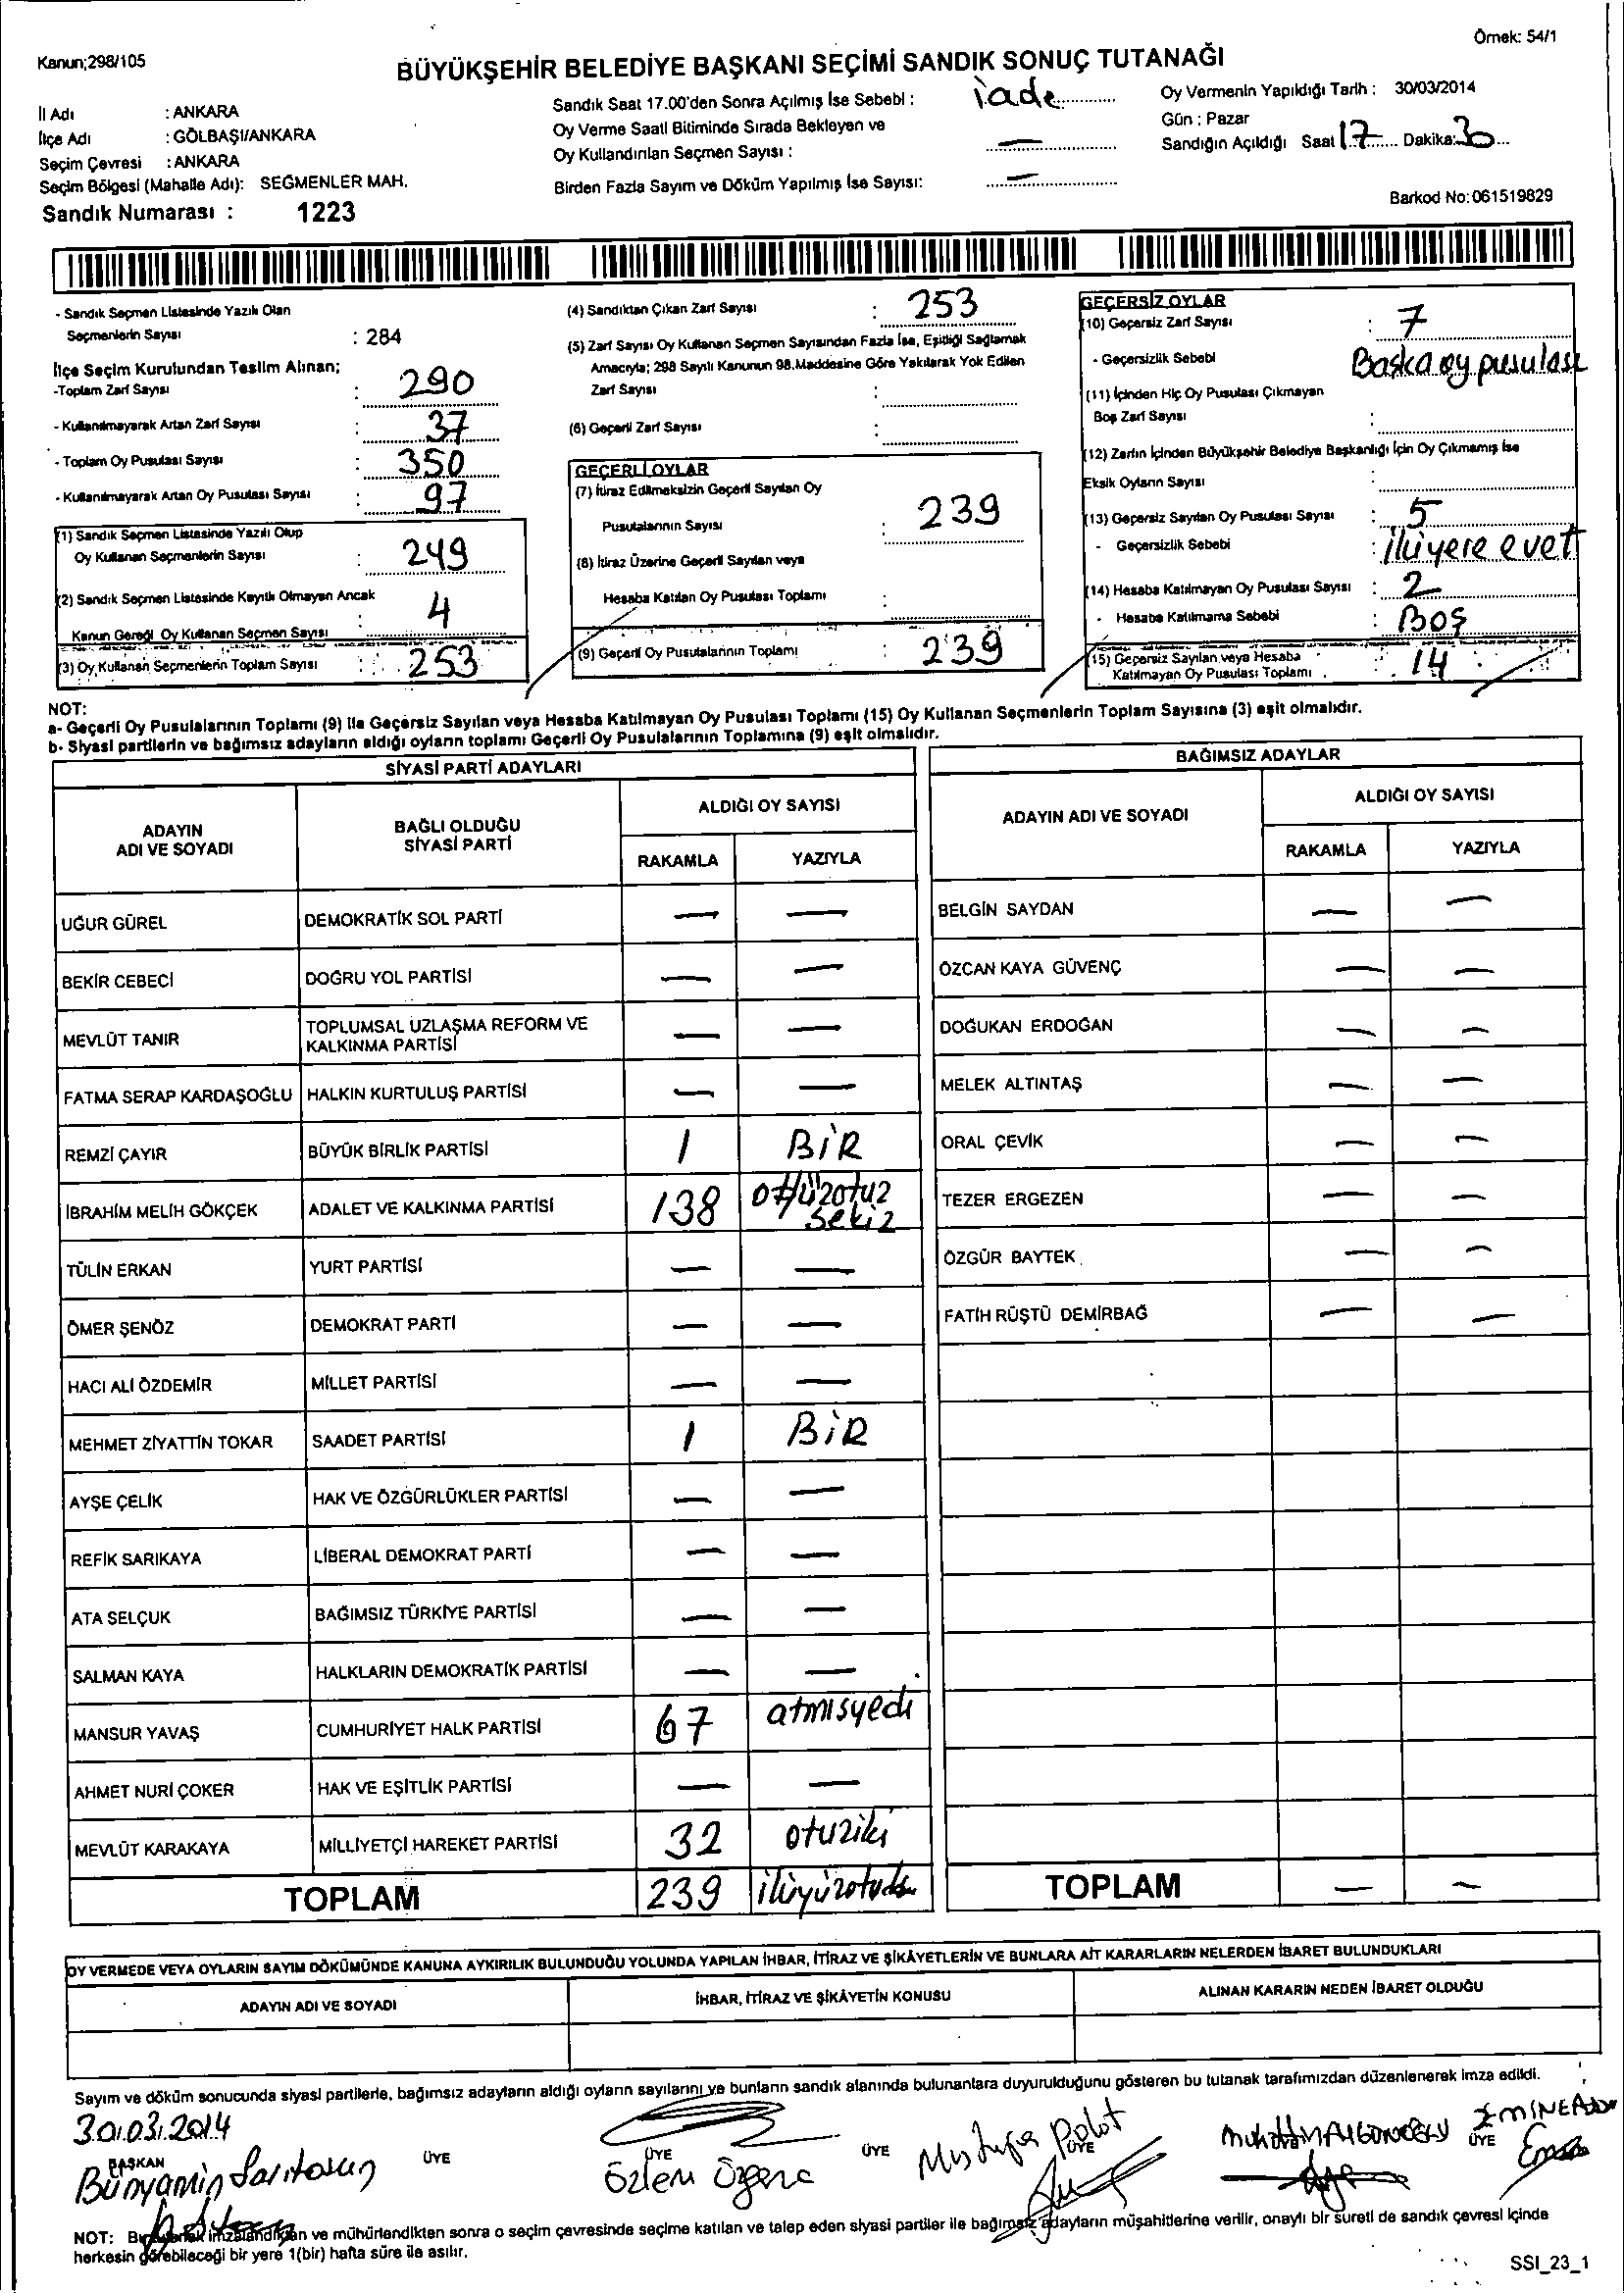 Örnek: 54/1
Kanun;298/105
BÜYÜKŞEHİR BELEDİYE BAŞKANI SEÇİMİ SANDIK SONUÇ TUTANAĞI
İl Adı : ANKARA
İlçe Adı : GÖLBAŞI/ANKARA
Seçim Çevresi : ANKARA
Seçim Bölgesi (Mahalle Adı): SEĞMENLER MAH.
Sandık Numarası : 1223
Sandık Saat 17.00'den Sonra Açılmış İse Sebebi : iade
Oy Verme Saati Bitiminde Sırada Bekleyen ve
Oy Kullandırılan Seçmen Sayısı : —
Birden Fazla Sayım ve Döküm Yapılmış İse Sayısı: —
Oy Vermenin Yapıldığı Tarih : 30/03/2014
Gün : Pazar
Sandığın Açıldığı Saat 17 Dakika: 30
Barkod No:061519829
- Sandık Seçmen Listesinde Yazılı Olan
Seçmenlerin Sayısı : 284
İlçe Seçim Kurulundan Teslim Alınan;
-Toplam Zarf Sayısı : 290
- Kullanılmayarak Artan Zarf Sayısı : 37
- Toplam Oy Pusulası Sayısı : 350
- Kullanılmayarak Artan Oy Pusulası Sayısı : 97
(1) Sandık Seçmen Listesinde Yazılı Olup
Oy Kullanan Seçmenlerin Sayısı : 249
(2) Sandık Seçmen Listesinde Kayıtlı Olmayan Ancak
Kanun Gereği Oy Kullanan Seçmen Sayısı : 4
(3) Oy Kullanan Seçmenlerin Toplam Sayısı : 253
(4) Sandıktan Çıkan Zarf Sayısı : 253
(5) Zarf Sayısı Oy Kullanan Seçmen Sayısından Fazla İse, Eşitliği Sağlamak
Amacıyla; 298 Sayılı Kanunun 98.Maddesine Göre Yakılarak Yok Edilen
Zarf Sayısı :
(6) Geçerli Zarf Sayısı :
GEÇERLİ OYLAR
(7) İtiraz Edilmeksizin Geçerli Sayılan Oy
Pusulalarının Sayısı : 239
(8) İtiraz Üzerine Geçerli Sayılan veya
Hesaba Katılan Oy Pusulası Toplamı :
(9) Geçerli Oy Pusulalarının Toplamı : 239
GEÇERSİZ OYLAR
(10) Geçersiz Zarf Sayısı : 7
- Geçersizlik Sebebi Başka oy pusulası
(11) İçinden Hiç Oy Pusulası Çıkmayan
Boş Zarf Sayısı :
(12) Zarfın İçinden Büyükşehir Belediye Başkanlığı İçin Oy Çıkmamış İse
Eksik Oyların Sayısı :
(13) Geçersiz Sayılan Oy Pusulası Sayısı : 5
- Geçersizlik Sebebi : ikiyere evet
(14) Hesaba Katılmayan Oy Pusulası Sayısı : 2
- Hesaba Katılmama Sebebi : BOŞ
(15) Geçersiz Sayılan veya Hesaba
Katılmayan Oy Pusulası Toplamı : 14
NOT:
a- Geçerli Oy Pusulalarının Toplamı (9) ile Geçersiz Sayılan veya Hesaba Katılmayan Oy Pusulası Toplamı (15) Oy Kullanan Seçmenlerin Toplam Sayısına (3) eşit olmalıdır.
b- Siyasi partilerin ve bağımsız adayların aldığı oyların toplamı Geçerli Oy Pusulalarının Toplamına (9) eşit olmalıdır.
SİYASİ PARTİ ADAYLARI
ADAYIN ADI VE SOYADI BAĞLI OLDUĞU SİYASİ PARTİ ALDIĞI OY SAYISI
RAKAMLA YAZIYLA
UĞUR GÜREL DEMOKRATİK SOL PARTİ — —
BEKİR CEBECİ DOĞRU YOL PARTİSİ — —
MEVLÜT TANIR TOPLUMSAL UZLAŞMA REFORM VE KALKINMA PARTİSİ — —
FATMA SERAP KARDAŞOĞLU HALKIN KURTULUŞ PARTİSİ — —
REMZİ ÇAYIR BÜYÜK BİRLİK PARTİSİ 1 BİR
İBRAHİM MELİH GÖKÇEK ADALET VE KALKINMA PARTİSİ 138 yüzotuz sekiz
TÜLİN ERKAN YURT PARTİSİ — —
ÖMER ŞENÖZ DEMOKRAT PARTİ — —
HACI ALİ ÖZDEMİR MİLLET PARTİSİ — —
MEHMET ZİYATTİN TOKAR SAADET PARTİSİ 1 BİR
AYŞE ÇELİK HAK VE ÖZGÜRLÜKLER PARTİSİ — —
REFİK SARIKAYA LİBERAL DEMOKRAT PARTİ — —
ATA SELÇUK BAĞIMSIZ TÜRKİYE PARTİSİ — —
SALMAN KAYA HALKLARIN DEMOKRATİK PARTİSİ — —
MANSUR YAVAŞ CUMHURİYET HALK PARTİSİ 67 atmışyedi
AHMET NURİ ÇOKER HAK VE EŞİTLİK PARTİSİ — —
MEVLÜT KARAKAYA MİLLİYETÇİ HAREKET PARTİSİ 32 otuziki
TOPLAM 239
BAĞIMSIZ ADAYLAR
ADAYIN ADI VE SOYADI ALDIĞI OY SAYISI
RAKAMLA YAZIYLA
BELGİN SAYDAN — —
ÖZCAN KAYA GÜVENÇ — —
DOĞUKAN ERDOĞAN — —
MELEK ALTINTAŞ — —
ORAL ÇEVİK — —
TEZER ERGEZEN — —
ÖZGÜR BAYTEK — —
FATİH RÜŞTÜ DEMİRBAĞ — —
TOPLAM — —
OY VERMEDE VEYA OYLARIN SAYIM DÖKÜMÜNDE KANUNA AYKIRILIK BULUNDUĞU YOLUNDA YAPILAN İHBAR, İTİRAZ VE ŞİKÂYETLERİN VE BUNLARA AİT KARARLARIN NELERDEN İBARET BULUNDUKLARI
ADAYIN ADI VE SOYADI İHBAR, İTİRAZ VE ŞİKÂYETİN KONUSU ALINAN KARARIN NEDEN İBARET OLDUĞU
Sayım ve döküm sonucunda siyasi partilerle, bağımsız adayların aldığı oyların sayılarını ve bunların sandık alanında bulunanlara duyurulduğunu gösteren bu tutanak tarafımızdan düzenlenerek imza edildi.
30.03.2014
BAŞKAN ÜYE ÜYE ÜYE ÜYE ÜYE
Bünyamin Özlem Mustafa Polat
NOT: Bu tutanak imzalandıktan ve mühürlendikten sonra o seçim çevresinde seçime katılan ve talep eden siyasi partiler ile bağımsız adayların müşahitlerine verilir, onaylı bir sureti de sandık çevresi içinde
herkesin görebileceği bir yere 1(bir) hafta süre ile asılır.
SSI_23_1